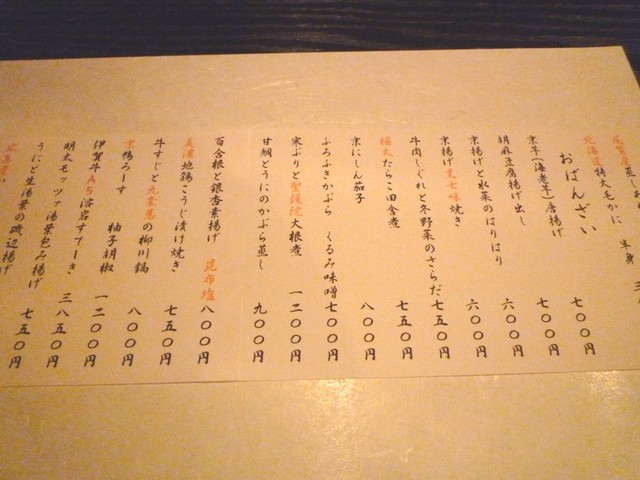 北海道特大毛がに 半身
おばんざい 七〇〇円
京芋(海老芋)唐揚げ 七〇〇円
胡麻豆腐揚げ出し 六〇〇円
京揚げと水菜のはりはり 六〇〇円
京揚げ黒七味焼き 七五〇円
牛肉しぐれと冬野菜のさらだ 七五〇円
極太たらこ田舎煮
京にしん茄子 八〇〇円
ふろふきかぶら くるみ味噌 七〇〇円
寒ぶりと聖護院大根煮 一二〇〇円
甘鯛とうにのかぶら蒸し 九〇〇円
百合根と銀杏素揚げ 昆布塩 八〇〇円
美濃地鶏こうじ漬け焼き 七五〇円
牛すじと九条葱の柳川鍋
京鴨ろーす 柚子胡椒 八〇〇円
伊賀牛A5溶岩すてーき 一二〇〇円
明太モッツァ湯葉包み揚げ 三八五〇円
うにと生湯葉の磯辺揚げ 七五〇円